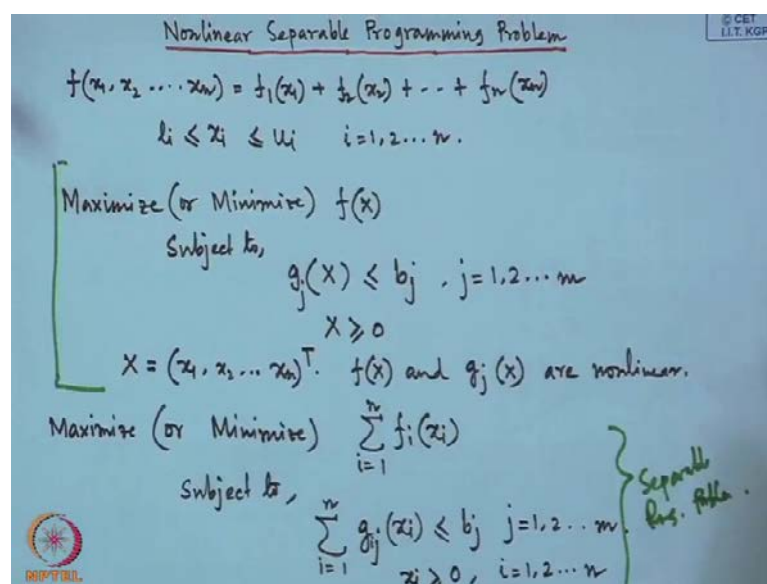 Nonlinear Separable Programming Problem
© CET
I.I.T. KGP
f(x₁, x₂ .... xₙ) = f₁(x₁) + f₂(x₂) + -- + fₙ(xₙ)
lᵢ ≤ xᵢ ≤ uᵢ i=1,2...n.
Maximize (or Minimize) f(X)
Subject to,
gⱼ(X) ≤ bⱼ , j=1,2...m
X ≥ 0
X = (x₁, x₂ ... xₙ)ᵀ. f(X) and gⱼ(X) are nonlinear.
Maximize (or Minimize) ∑ᵢ₌₁ⁿ fᵢ(xᵢ)
Subject to,
∑ᵢ₌₁ⁿ gᵢⱼ(xᵢ) ≤ bⱼ j=1,2..m.
xᵢ ≥ 0, i=1,2...n
Separable
NPTEL